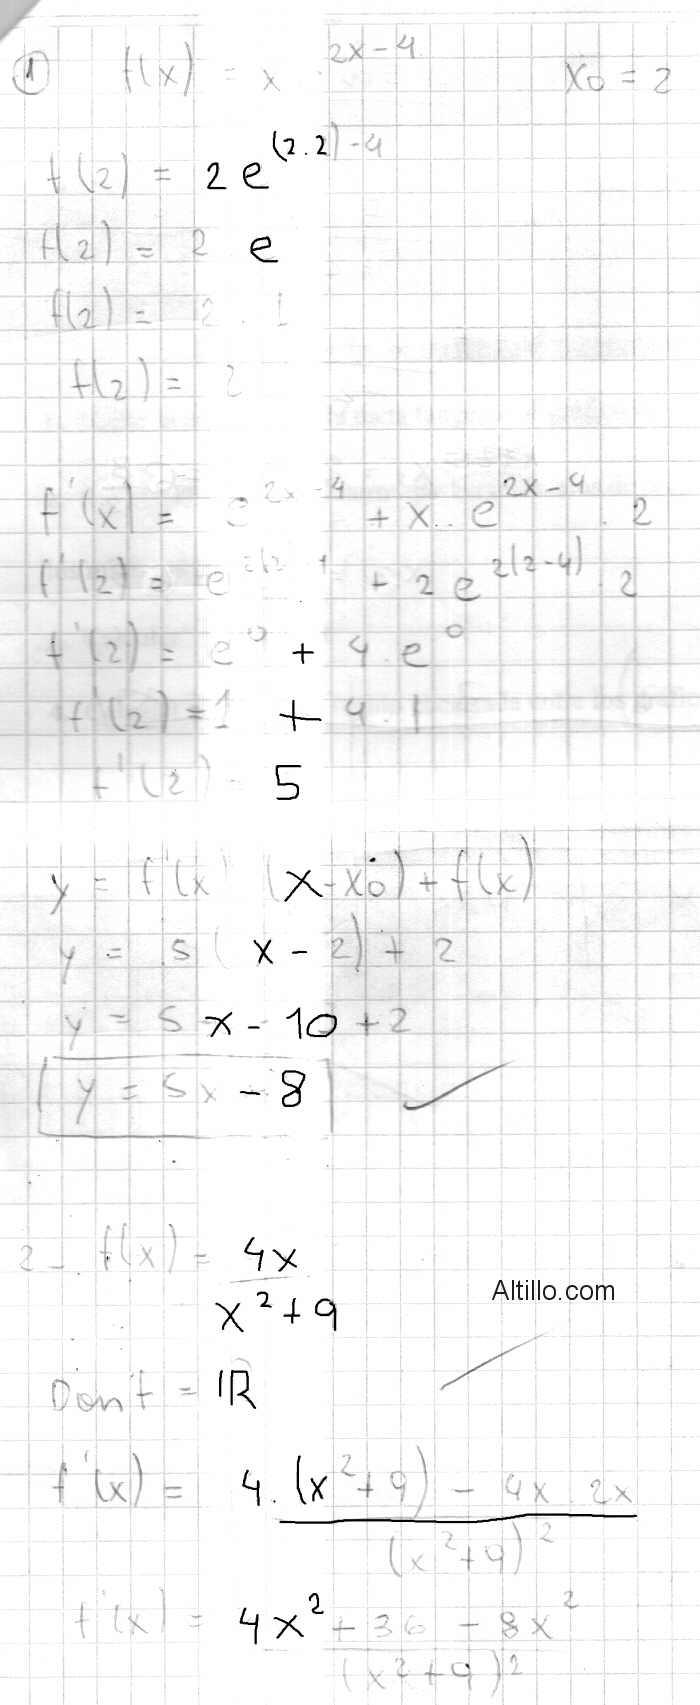 ① f(x) = x 2x-4 x0 = 2
f(2) = 2 e^(2.2)-4
f(2) = 2 e
f(2) = 2 . 1
f(2) = 2
f'(x) = e^2x-4 + x . e^2x-4 . 2
f'(2) = e^2(2 + 2 e^2(2-4) . 2
f'(2) = e^0 + 4 . e^0
f'(2) = 1 + 4 . 1
f'(2) = 5
y = f'(x) (x-x0) + f(x)
y = 5 (x - 2) + 2
y = 5x - 10 + 2
y = 5x - 8
2-. f(x) = 4x
x^2+9
Altillo.com
Dom f = ℝ
f'(x) = 4.(x^2+9) - 4x . 2x
(x^2+9)^2
f'(x) = 4x^2 + 36 - 8x^2
(x^2+9)^2